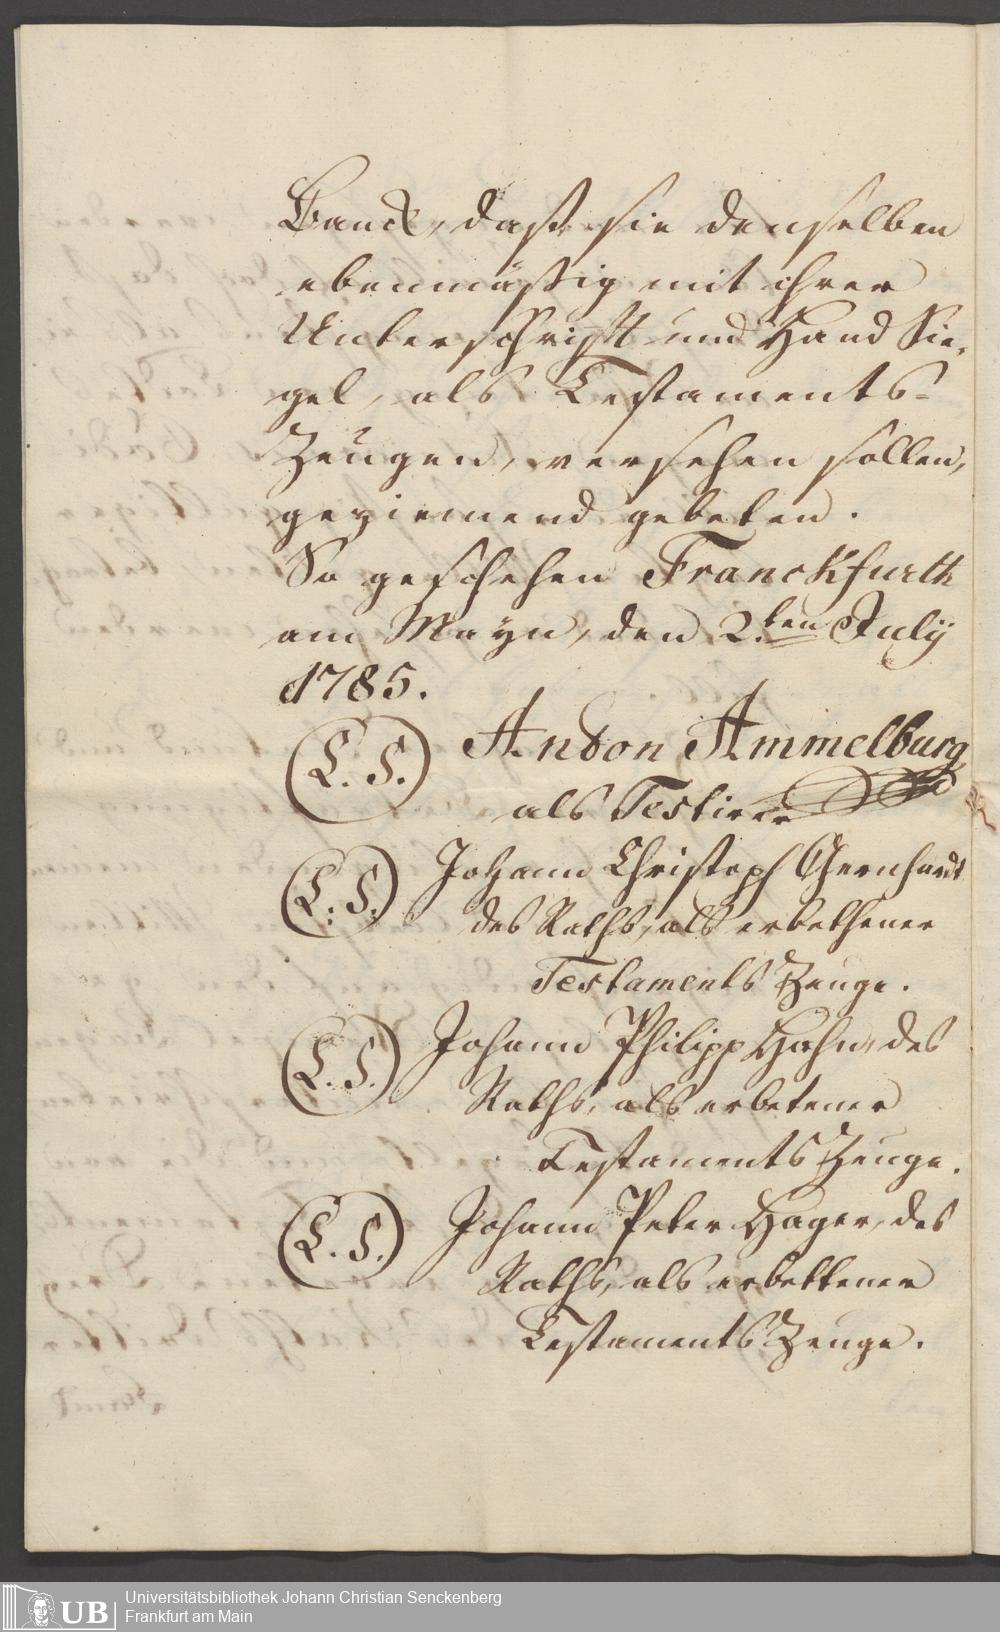 Banck, daß sie denselben
ebenmäßig mit ihrer
Unterschrifft und Hand Sie-
gel, als Testaments-
Zeugen, versehen sollen,
geziemend gebeten.
So geschehen Franckfurth
am Mayn, den 2.ten July
1785.
(L. S.) Andon Ammelburg
als Testirer
(L. S.) Johann Christoph Gernhardt
des Raths, als erbethener
Testaments Zeuge.
(L. S.) Johann Philipp Hahn, des
Raths, als erbetener
Testaments Zeuge.
(L. S.) Johann Peter Hager, des
Raths, als erbettener
Testaments Zeuge.
UB Universitätsbibliothek Johann Christian Senckenberg
Frankfurt am Main